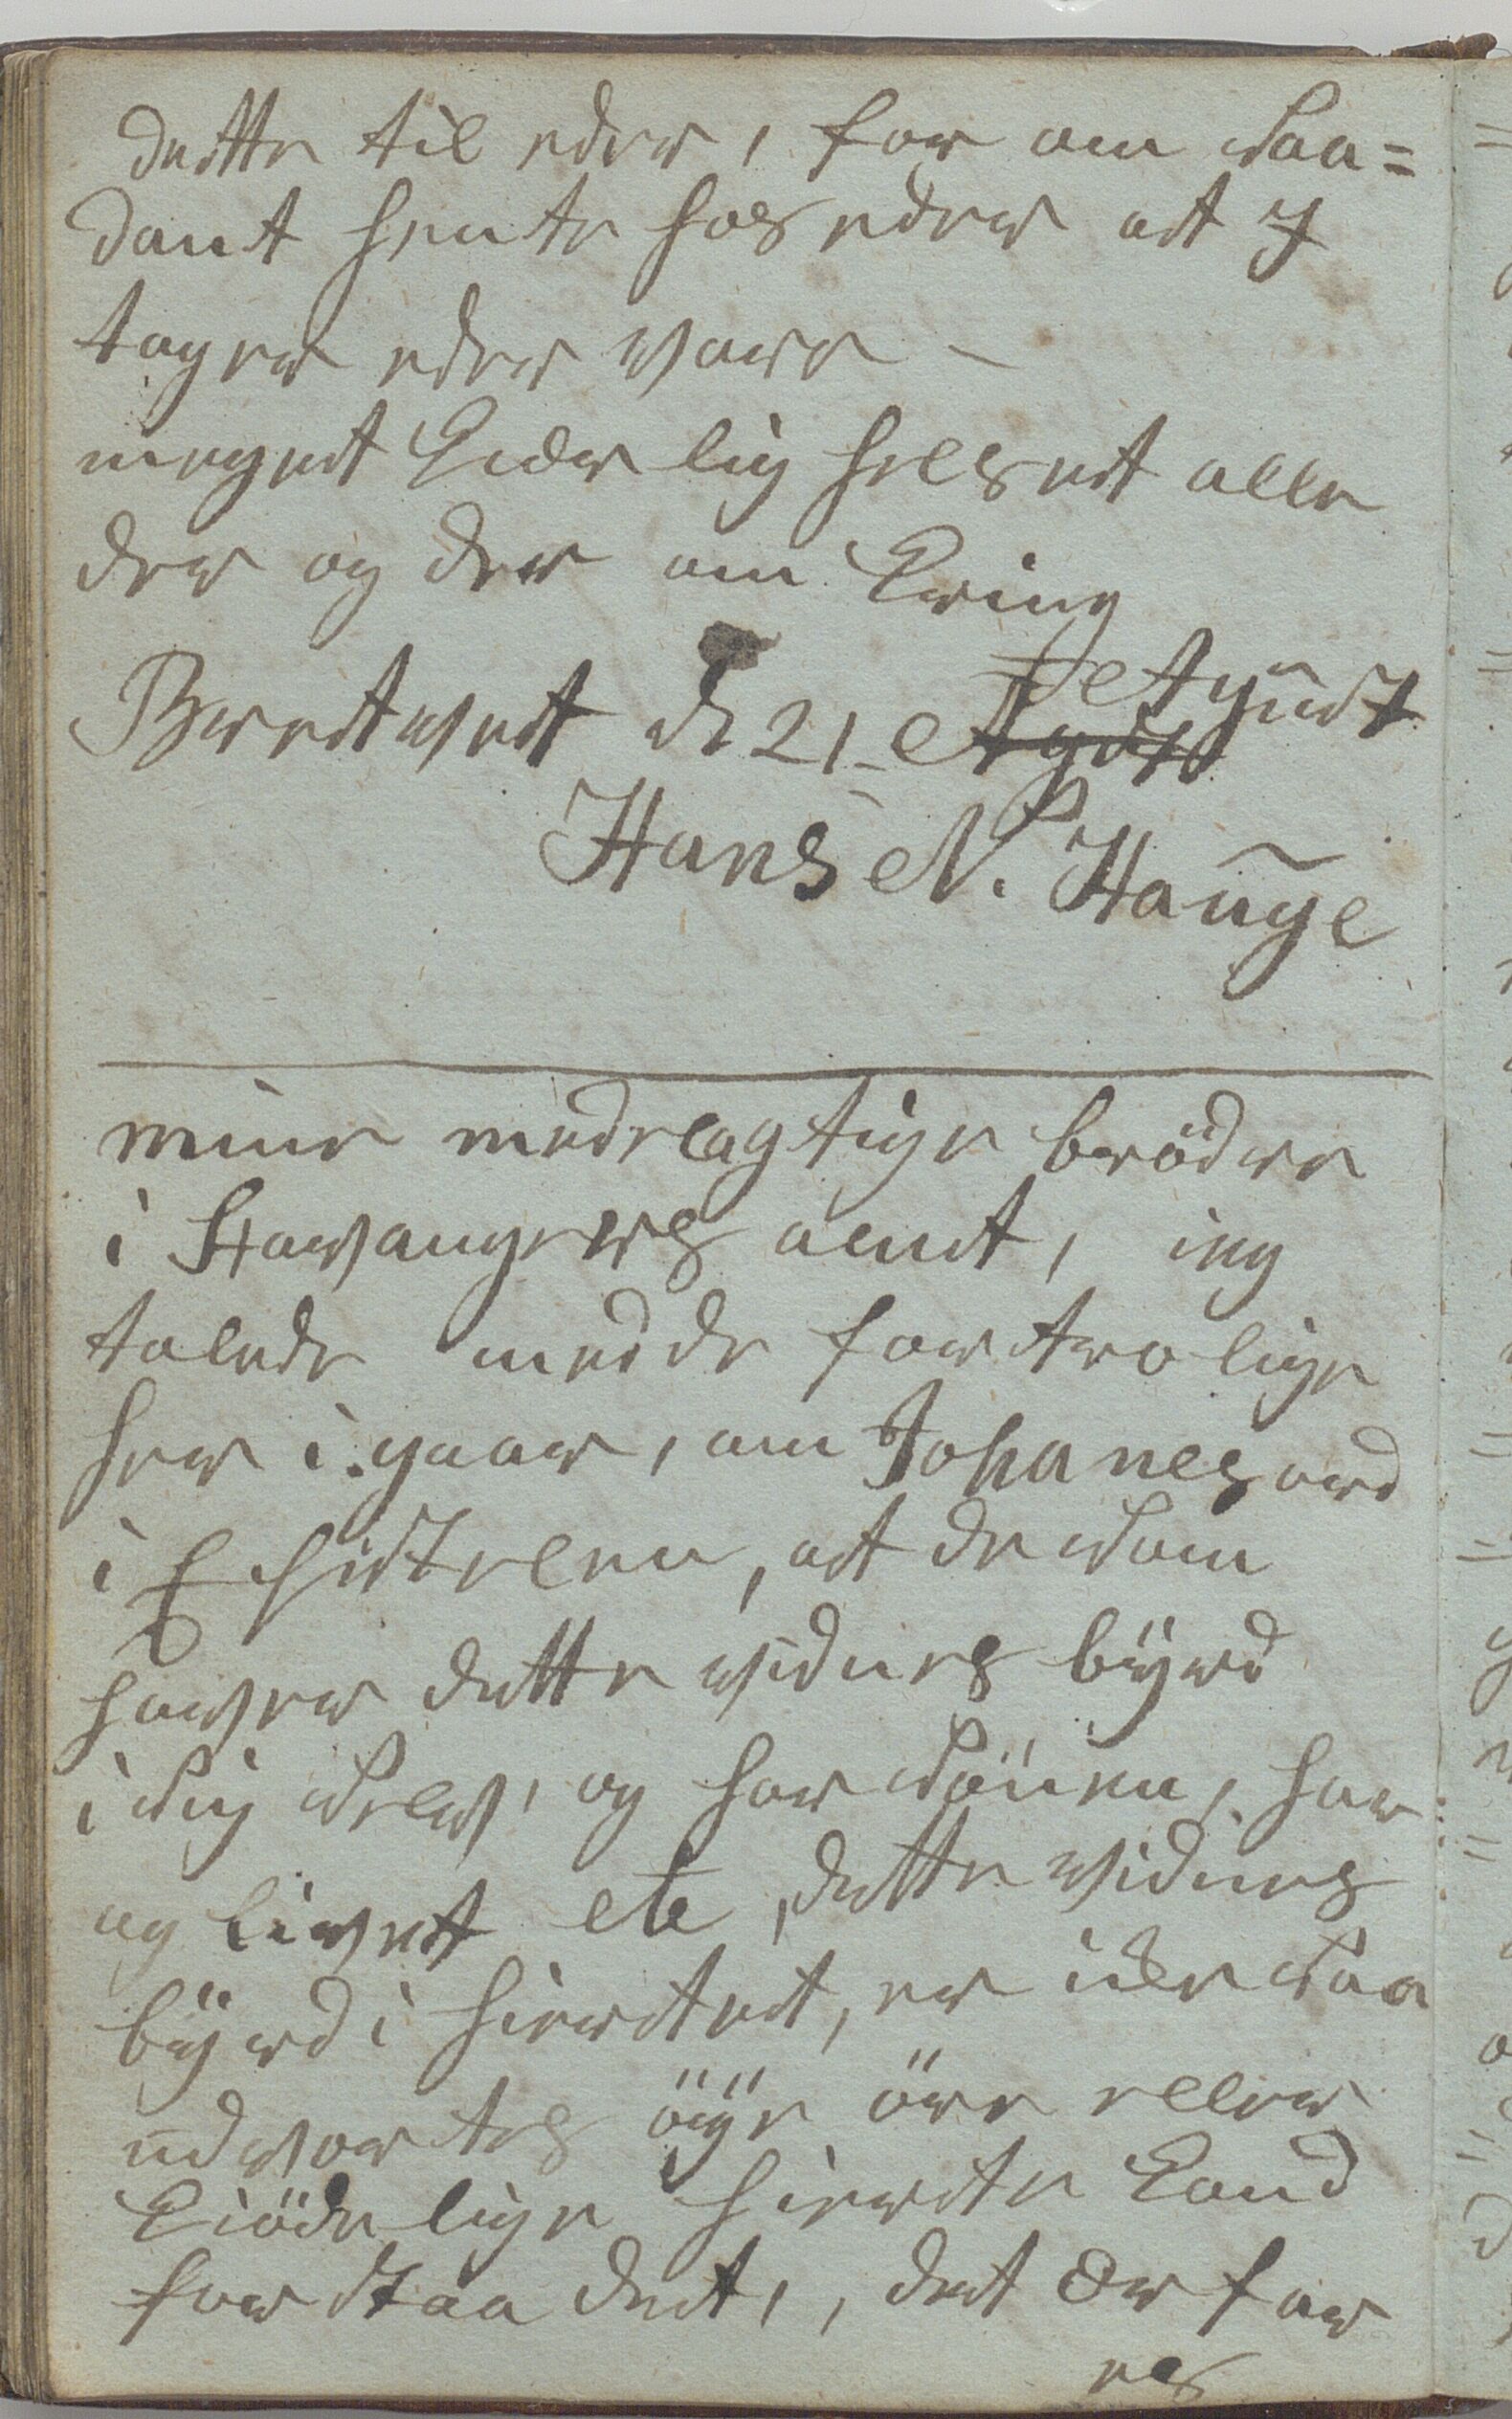 dette til eder, for om saa=
dant hente hos eder at I
tager eder vare –
meget kierlig helset alle
der og der om kring
Bredtvedt d 21 – Agust
Hans N. Hauge
mine medelagtige brödre
i Stavangers amt, ieg
talede med de fortrolige
her i gaar, om Johanes ord
i Ephistelen, at de som
haver dette vidnes byrd
i sig selv, og har sönen, har
og livet etc, dette vidnes
byrd i hiertet, er ikke saa
udvortes öÿe öre eller
kiödelige hierte kand
forstaa det,, det Er for